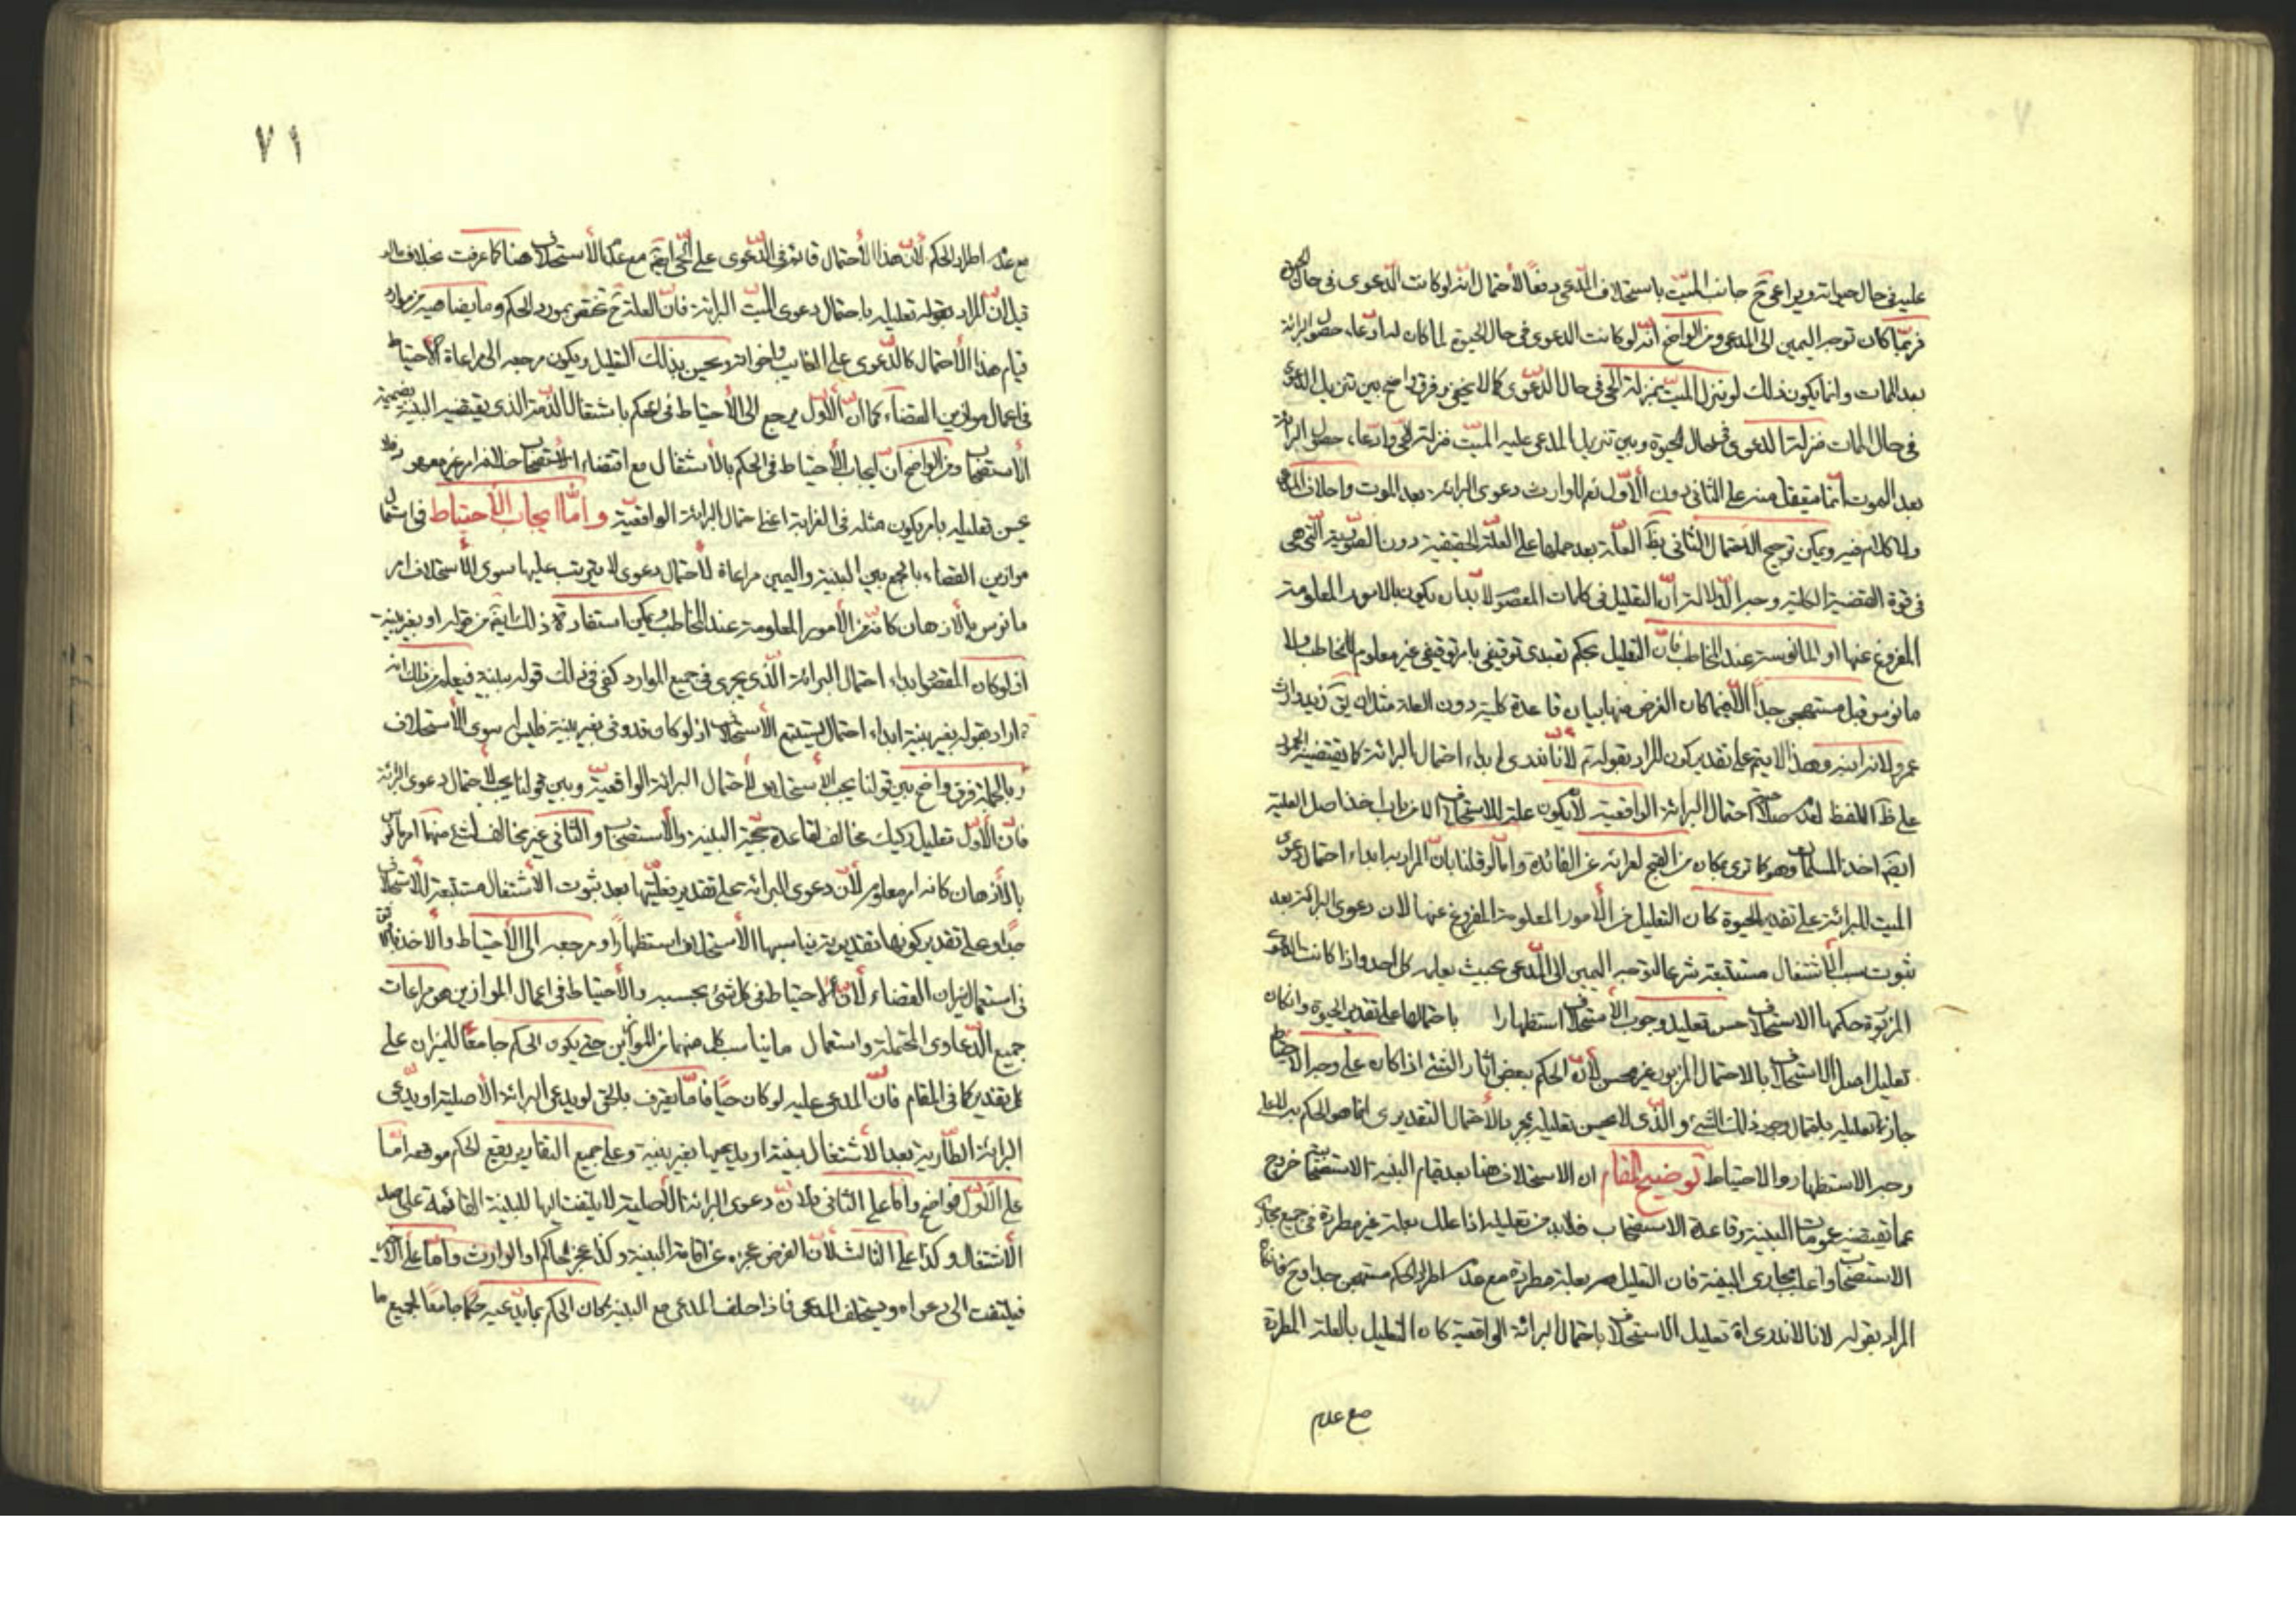 عليه في حال حيوته ويراعى ح جانب الميّت باستحلاف المدّعى دفعًا لاحتمال انه لو كانت الدّعوى في حال الحيوة
فربّما كان توجه اليمين الى المدعى ومن الواضح انّه لو كانت الدعوى في حال الحيوة لما كان له ادعاء حصول البرائة
بعد الممات وانما يكون ذلك لو ينزل الميّت بمنزلة الحي في حال الدّعوى كما لا يخفى وفرق واضح بين تنزيل الدعوى
في حال الممات منزلة الدعوى في حال الحيوة وبين تنزيل المدعى عليه الميّت منزلة الحي وادّعاء حصول البرائة
بعد الموت انّما يتعقل منه على الثانى دون الأوّل نعم للوارث دعوى البرائة بعد الموت واحلاف المدعى
ولا كلام فيه ويمكن ترجيح الاحتمال الثّانى بظ العلّة بعد حملها على العلّة الحقيقية دون الصّورية الّتى هى
في قوة القضية الكلية وجه الدّلالة انّ التعليل في كلمات المعصوم لا بدّ ان يكون بالامور المعلومة
المفروغ عنها او المأنوسة عند المخاطب فانّ التعليل بحكم تعبدى توقيفى بامر توقيفى غير معلوم للمخاطب ولا
مانوس قبل مستهجن جدّا الّا فيما كان الغرض منها بيان قاعدة كلية دون العلة مثل ان يق زيد وارث
عمرو لانه ابنه وهذا لا يتم على تقدير كون المراد بقوله ع لانا لا ندرى ابداء احتمال البرائة كما يقتضيه الجمود
على ظ اللفظ لعدم صلاحية احتمال البرائة الواقعية لأن يكون علة للاستحلاف الا من باب اخذ اصل العلية
ايضا اخذ المسلمات وهو كما ترى بمكان من القبح لعرائه عن الفائدة وامّا لو قلنا بانّ المراد به ابداء احتمال دعوى
الميت للبرائة على تقدير الحيوة كان التعليل من الأمور المعلومة المفروغ عنها لان دعوى البرائة بعد
ثبوت سبب الاشتغال مستتبعة شرعا لتوجه اليمين الى المدّعى بحيث يعلمه كل احد واذا كانت الدعوى
المزبورة حكمها الاستحلاف حسن تعليل وجوب الأستحلاف استظهارا باحتمالها على تقدير الحيوة وان كان
تعليل اصل الاستحلاف بالاحتمال المزبور غير محسن لأنّ الحكم ببعض اثار الشئ اذا كان على وجه الاحتياط
جاز تعليله باحتمال وجود ذلك الشئ والّذى لا يحسن تعليله بمجرد الأحتمال التقديرى انّما هو الحكم به لا على
وجه الاستظهار والاحتياط توضيح المقام ان الاستحلاف هنا بعد قيام البينة الاستصحاب خروج
عما تقتضيه عمومات البينة وقاعدة الاستصحاب فلا بد من تعليله اذا علل بعلة غير مطردة في جميع مجارى
الاستصحاب واغلب مجارى البينة فان التعليل ح بعلة مطردة مع عدم اطراد الحكم مستهجن جدا وح فان كان
المراد بقوله لانا لا ندرى اه تعليل الاستحلاف باحتمال البرائة الواقعية كان التعليل بالعلة المطردة
مع عدم
٧١
مع عدم اطراد الحكم لأنّ هذا الأحتمال قائم في الدّعوى على الحي ايضا مع عدم الأستحلاف هنا كما عرفت بخلاف ما لو
قيل انّ المراد بقوله تعليله باحتمال دعوى الميّت البرائة فانّ العلة ح تختص بمورد الحكم وما يضاهيه من موارد
قيام هذا الأحتمال كالدّعوى على الغايب واخواته ويحسن بذلك التعليل ويكون مرجعه الى مراعاة الأحتياط
في اعمال موازين القضاء كما انّ الأوّل يرجع الى الأحتياط في الحكم باشتغال الذّمة الذى يقتضيه البيّنة بضميمة
الأستصحاب ومن الواضح انّ ايجاب الأحتياط في الحكم بالأشتغال مع اقتضاء الأستصحاب خلافه امر غير معهود ولا
يحسن تعليله بامر يكون مثله في الغرابة اعنى احتمال البرائة الواقعيّة وامّا ايجاب الأحتياط في استعمال
موازين القضاء بالجمع بين البيّنة واليمين مراعاة لأحتمال دعوى لا يترتب عليها سوى الأستحلاف امر
مانوس بالأذهان كانّه من الأمور المعلومة عند المخاطب ويمكن استفادة ذلك ايضا من قوله او بغير بيّنة
اذ لو كان المقصود ابداء احتمال البرائة الّذى يجرى في جميع الموارد كفى في ذلك قوله ببيّنة فيعلم من ذلك انه
ع اراد بقوله بغير بيّنة ابداء احتمال يستتبع الأستحلاف اذ لو كان قد وفى بغير بيّنة فليس له سوى الأستحلاف
وبالجملة فرق واضح بين قولنا يجب الأستحلاف لأحتمال البرائة الواقعيّة وبين قولنا يجب لأحتمال دعوى البرائة
فانّ الأوّل تعليل ركيك مخالف لقاعدة حجّية البيّنة والأستصحاب والثّانى غير مخالف لشئ منهما امر مانوس
بالأذهان كانه امر معلوم لأنّ دعوى البرائة على تقدير فعليّتها بعد ثبوت الأشتغال مستتبعة للأستحلاف
جدا وعلى تقدير كونها تقديرية يناسبها الأستحلاف استظهارًا ومرجعه الى الأحتياط والأخذ بالاوثق
في استعمال ميزان القضاء لأنّ الأحتياط في كل شئ بحسبه والأحتياط في اعمال الموازين هو مراعات
جميع الدّعاوى المحتملة واستعمال ما يناسب كل منهما من الموازين حتى يكون الحكم جامعًا للميزان على
كل تقدير كما في المقام فانّ المدعى عليه لو كان حيًّا فامّا يعترف بالحق او يدعى البرائة الأصلية او يدّعى
البرائة الطّارية بعد الأشتغال ببيّنة او يدعيها بغير بيّنة وعلى جميع التقادير يقع الحكم موقعه امّا
على الأوّل فواضح وامّا على الثّانى فلانّ دعوى البرائة الأصلية لا يلتفت اليها للبيّنة القائمة على ضد
الأشتغال وكذا على الثالث لأنّ الفرض عجزه عن اقامة البيّنة وكذا عجز الحاكم او الوارث وامّا على الأخير
فيلتفت الى دعواه ويستحلف المدعى فاذا حلف المدعى مع البيّنة كان الحكم بما يدّعيه حكما جامعًا لجميع ما